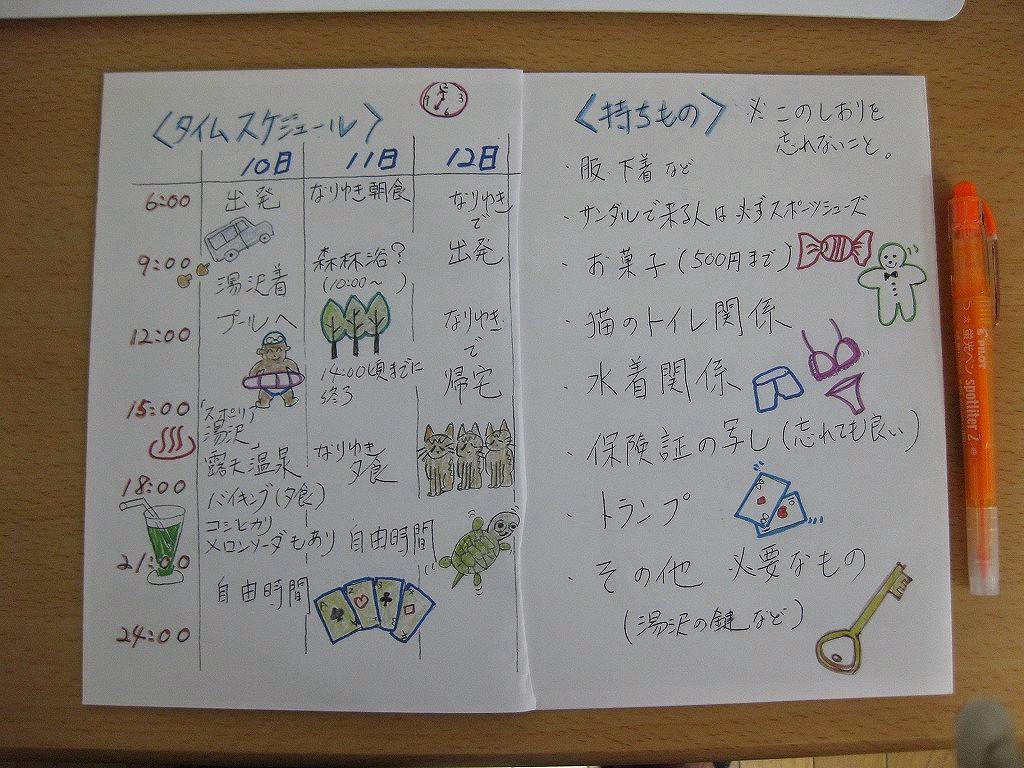 〈タイムスケジュール〉
12
9 3
6
10日 11日 12日
6:00 出発 なりゆき朝食 なりゆき
で
出発
9:00 湯沢着 森林浴?
(10:00〜 )
12:00 プールへ なりゆき
で
帰宅
14:00頃までに
終了
15:00 「スポーリア」
湯沢
露天温泉 なりゆき
夕食
18:00 バイキング(夕食)
コシヒカリ
メロンソーダもあり 自由時間
21:00 自由時間
24:00
〈持ちもの〉 ※このしおりを
忘れないこと。
・服、下着など
・サンダルで来る人は必ずスポーツシューズ
・お菓子(500円まで)
・猫のトイレ関係
・水着関係
・保険証の写し(忘れても良い)
・トランプ
・その他 必要なもの
(湯沢の鍵など)
PILOT
蛍光ペン spotliter